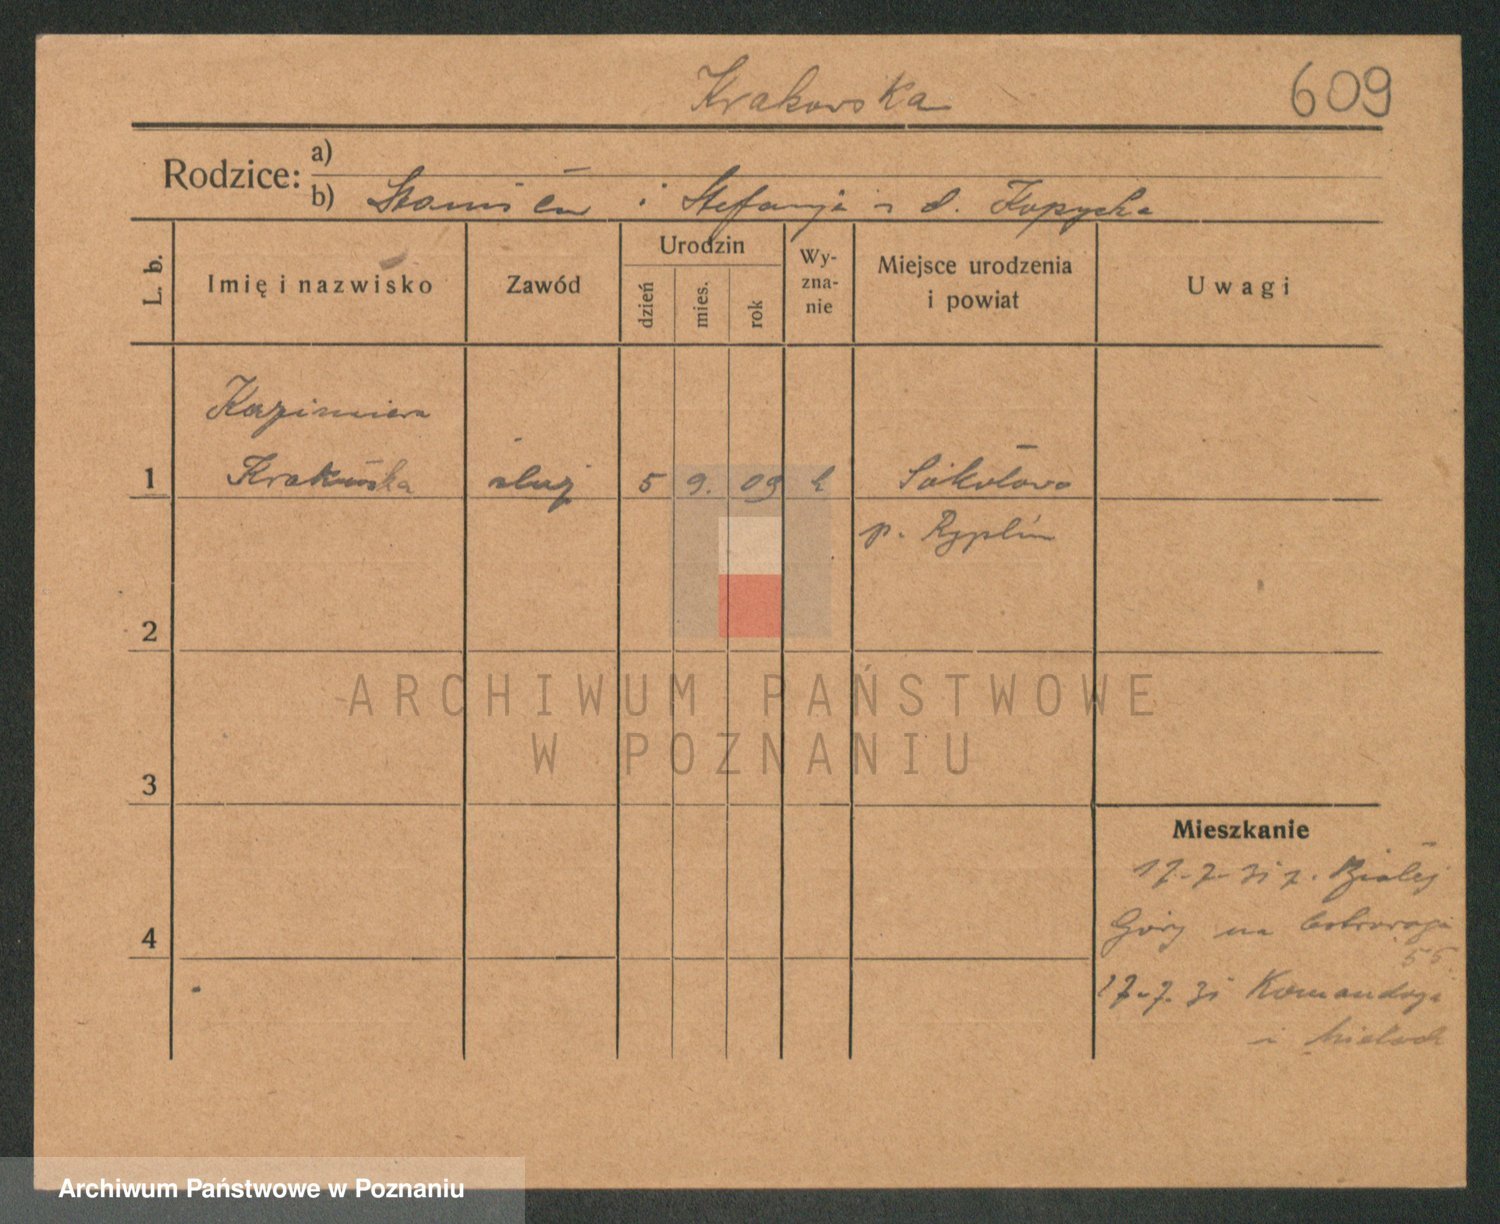 Krakowska 609
Rodzice: a)
b) Stanisław i Stefanja z d.
L. b. Imię i nazwisko Zawód Urodzin dzień mies. rok Wyznanie Miejsce urodzenia i powiat Uwagi
Kazimiera
1 Krakowska służ 5 9. 09 k Sokołowo
p. Rypin
2
3
Mieszkanie
17-7-31 z. Białej
4 Góry na 55
17-7-31
i
ARCHIWUM PAŃSTWOWE
W POZNANIU
Archiwum Państwowe w Poznaniu